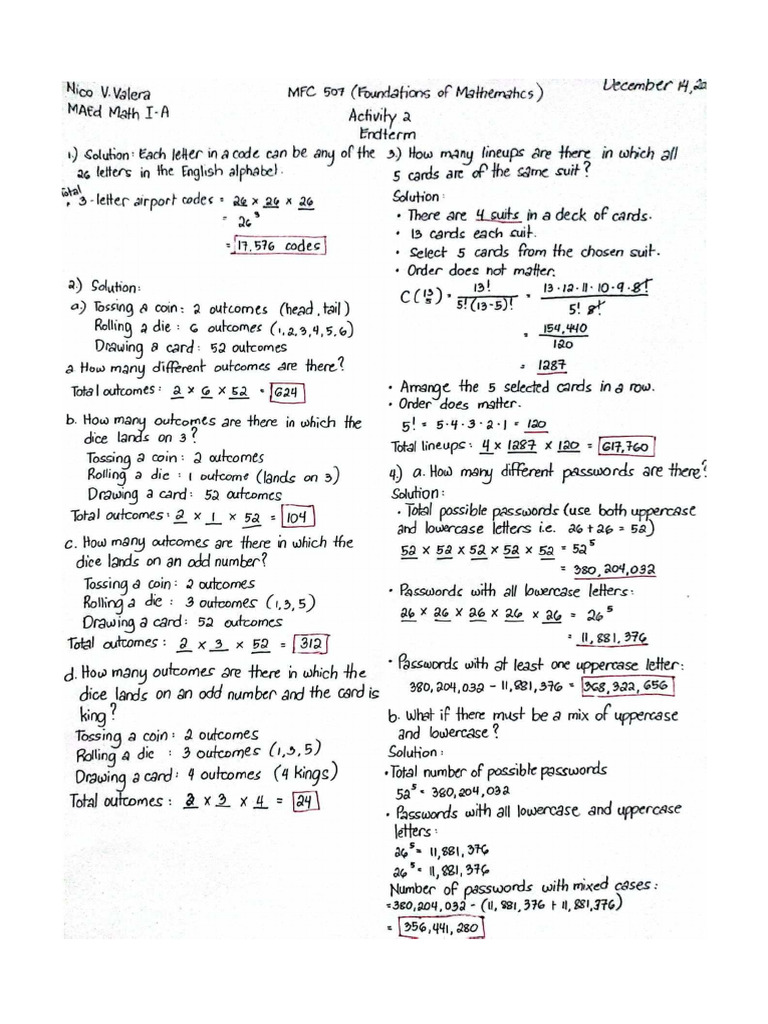 Nico V. Valera
MAEd Math I-A
MFC 507 (Foundations of Mathematics)
Activity 2
Endterm
December 14, 20
1.) Solution: Each letter in a code can be any of the
26 letters in the English alphabet.
Total
3-letter airport codes = 26 × 26 × 26
= 26³
= 17,576 codes
2.) Solution:
a.) Tossing a coin: 2 outcomes (head, tail)
Rolling a die : 6 outcomes (1,2,3,4,5,6)
Drawing a card: 52 outcomes
a How many different outcomes are there?
Total outcomes: 2 × 6 × 52 = 624
b. How many outcomes are there in which the
dice lands on 3?
Tossing a coin: 2 outcomes
Rolling a die : 1 outcome (lands on 3)
Drawing a card: 52 outcomes
Total outcomes: 2 × 1 × 52 = 104
c. How many outcomes are there in which the
dice lands on an odd number?
Tossing a coin: 2 outcomes
Rolling a die : 3 outcomes (1,3,5)
Drawing a card: 52 outcomes
Total outcomes: 2 × 3 × 52 = 312
d. How many outcomes are there in which the
dice lands on an odd number and the card is
king?
Tossing a coin: 2 outcomes
Rolling a die : 3 outcomes (1,3,5)
Drawing a card: 4 outcomes (4 kings)
Total outcomes : 2 × 3 × 4 = 24
3.) How many lineups are there in which all
5 cards are of the same suit?
Solution:
• There are 4 suits in a deck of cards.
• 13 cards each suit.
• Select 5 cards from the chosen suit.
• Order does not matter.
C(13 5) = 13! / 5!(13-5)! = 13·12·11·10·9·8! / 5! 8!
= 154,440 / 120
= 1287
• Arrange the 5 selected cards in a row.
• Order does matter.
5! = 5·4·3·2·1 = 120
Total lineups: 4 × 1287 × 120 = 617,760
4.) a. How many different passwords are there?
Solution:
• Total possible passwords (use both uppercase
and lowercase letters i.e. 26+26 = 52)
52 × 52 × 52 × 52 × 52 = 52⁵
= 380,204,032
• Passwords with all lowercase letters:
26 × 26 × 26 × 26 × 26 = 26⁵
= 11,881,376
• Passwords with at least one uppercase letter:
380,204,032 - 11,881,376 = 368,322,656
b. What if there must be a mix of uppercase
and lowercase?
Solution:
• Total number of possible passwords
52⁵ = 380,204,032
• Passwords with all lowercase and uppercase
letters:
26⁵ = 11,881,376
26⁵ = 11,881,376
Number of passwords with mixed cases:
= 380,204,032 - (11,881,376 + 11,881,376)
= 356,441,280